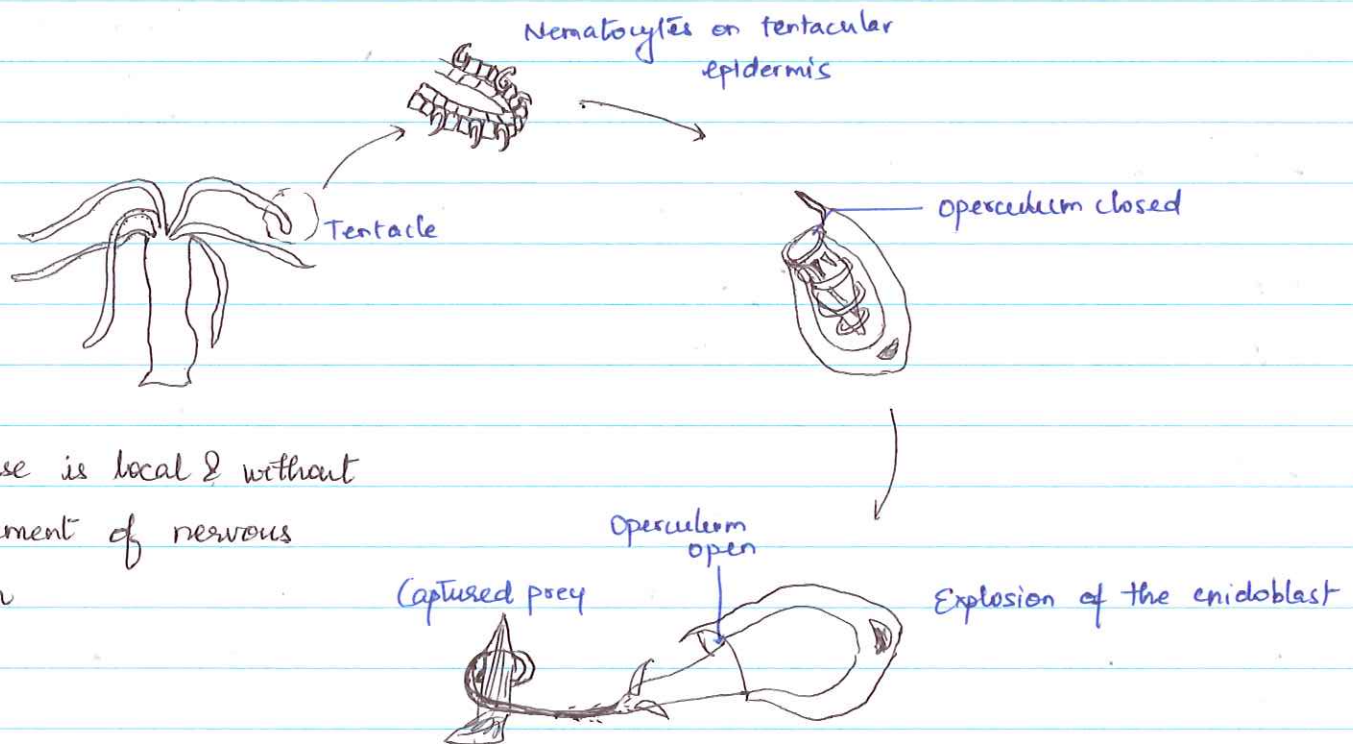 Nematocytes on tentacular
epidermis
Tentacle
Operculum closed
se is local & without
ement of nervous
Operculum
open
Captured prey
Explosion of the cnidoblast